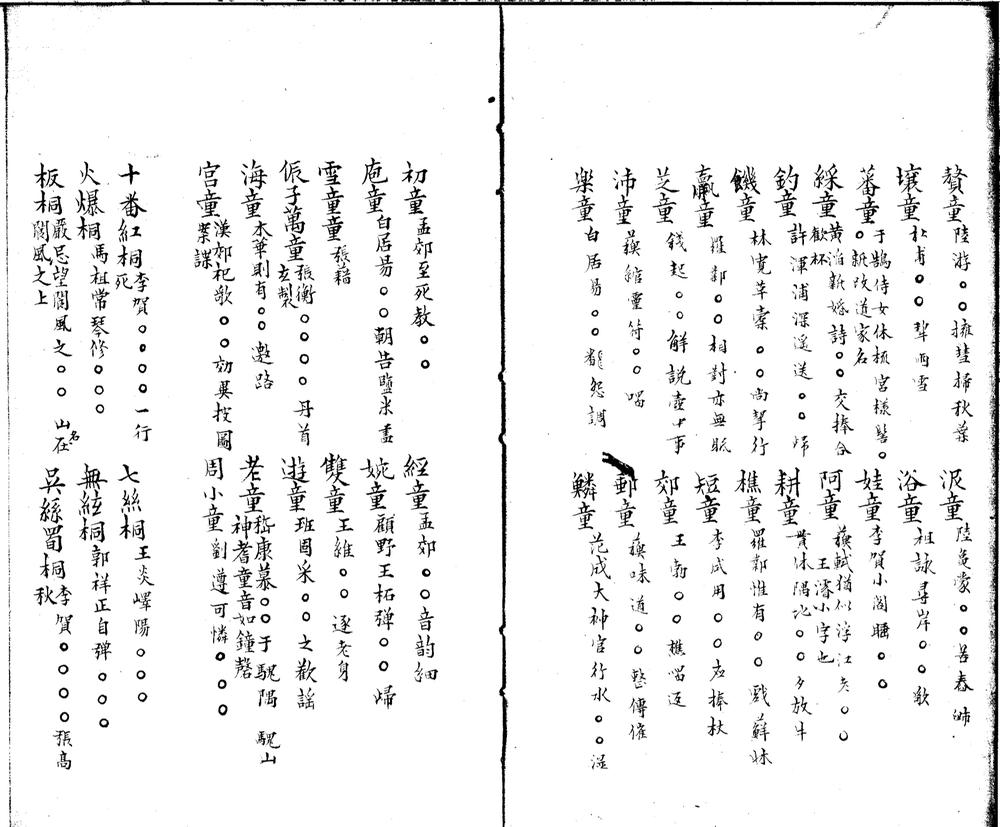 贅童陸游○○擁彗掃秋葉
汲童陸龜蒙○○苦春
壤童杜甫○○犂雨雪
浴童祖詠尋岸○○歌
蕃童于鵠侍女休梳宮樣髻○○新改道家名
娃童李賀小閣睡○○
綵童黃滔新婚詩○○交捧合歡杯
阿童蘇軾猶似浮江老○○王濬小字也
釣童許渾浦深遥送○○歸
耕童貫休隔水○○夕放牛
饑童林寬草○○尚拏行
樵童羅鄴惟有○○戲蘚牀
羸童羅鄴○○相對亦無眠
短童李咸用○○應捧杖
芝童錢起○○解說壺中事
郊童王勃○○樵唱返
沛童蘇綰靈符○○唱
郵童蘇味道○○整傳催
樂童白居易○○翻怨調
鱗童范成大神官行水○○溼
初童孟郊至死教○○
經童孟郊○○音韵細
庖童白居易○○朝告鹽米盡
婉童顧野王柘彈○○歸
雪童童張籍
雙童王維○○逐老身
侲子萬童張衡○○○○丹首玄製
遊童班固采○○之歡謠
海童木華則有○○邀路
老童嵇康慕○○于騩隅 騩山神耆童音如鐘磬
宮童漢郊祀歌○○効異按圖案諜
周小童劉遵可憐○○○
十番紅桐李賀○○○○一行死
七絲桐王炎嶧陽○○○
火爆桐馬祖常琴修○○○
無絃桐郭祥正自彈○○○
板桐嚴忌望閬風之○○ 山名在閬風之上
吳絲蜀桐李賀○○○○張高秋